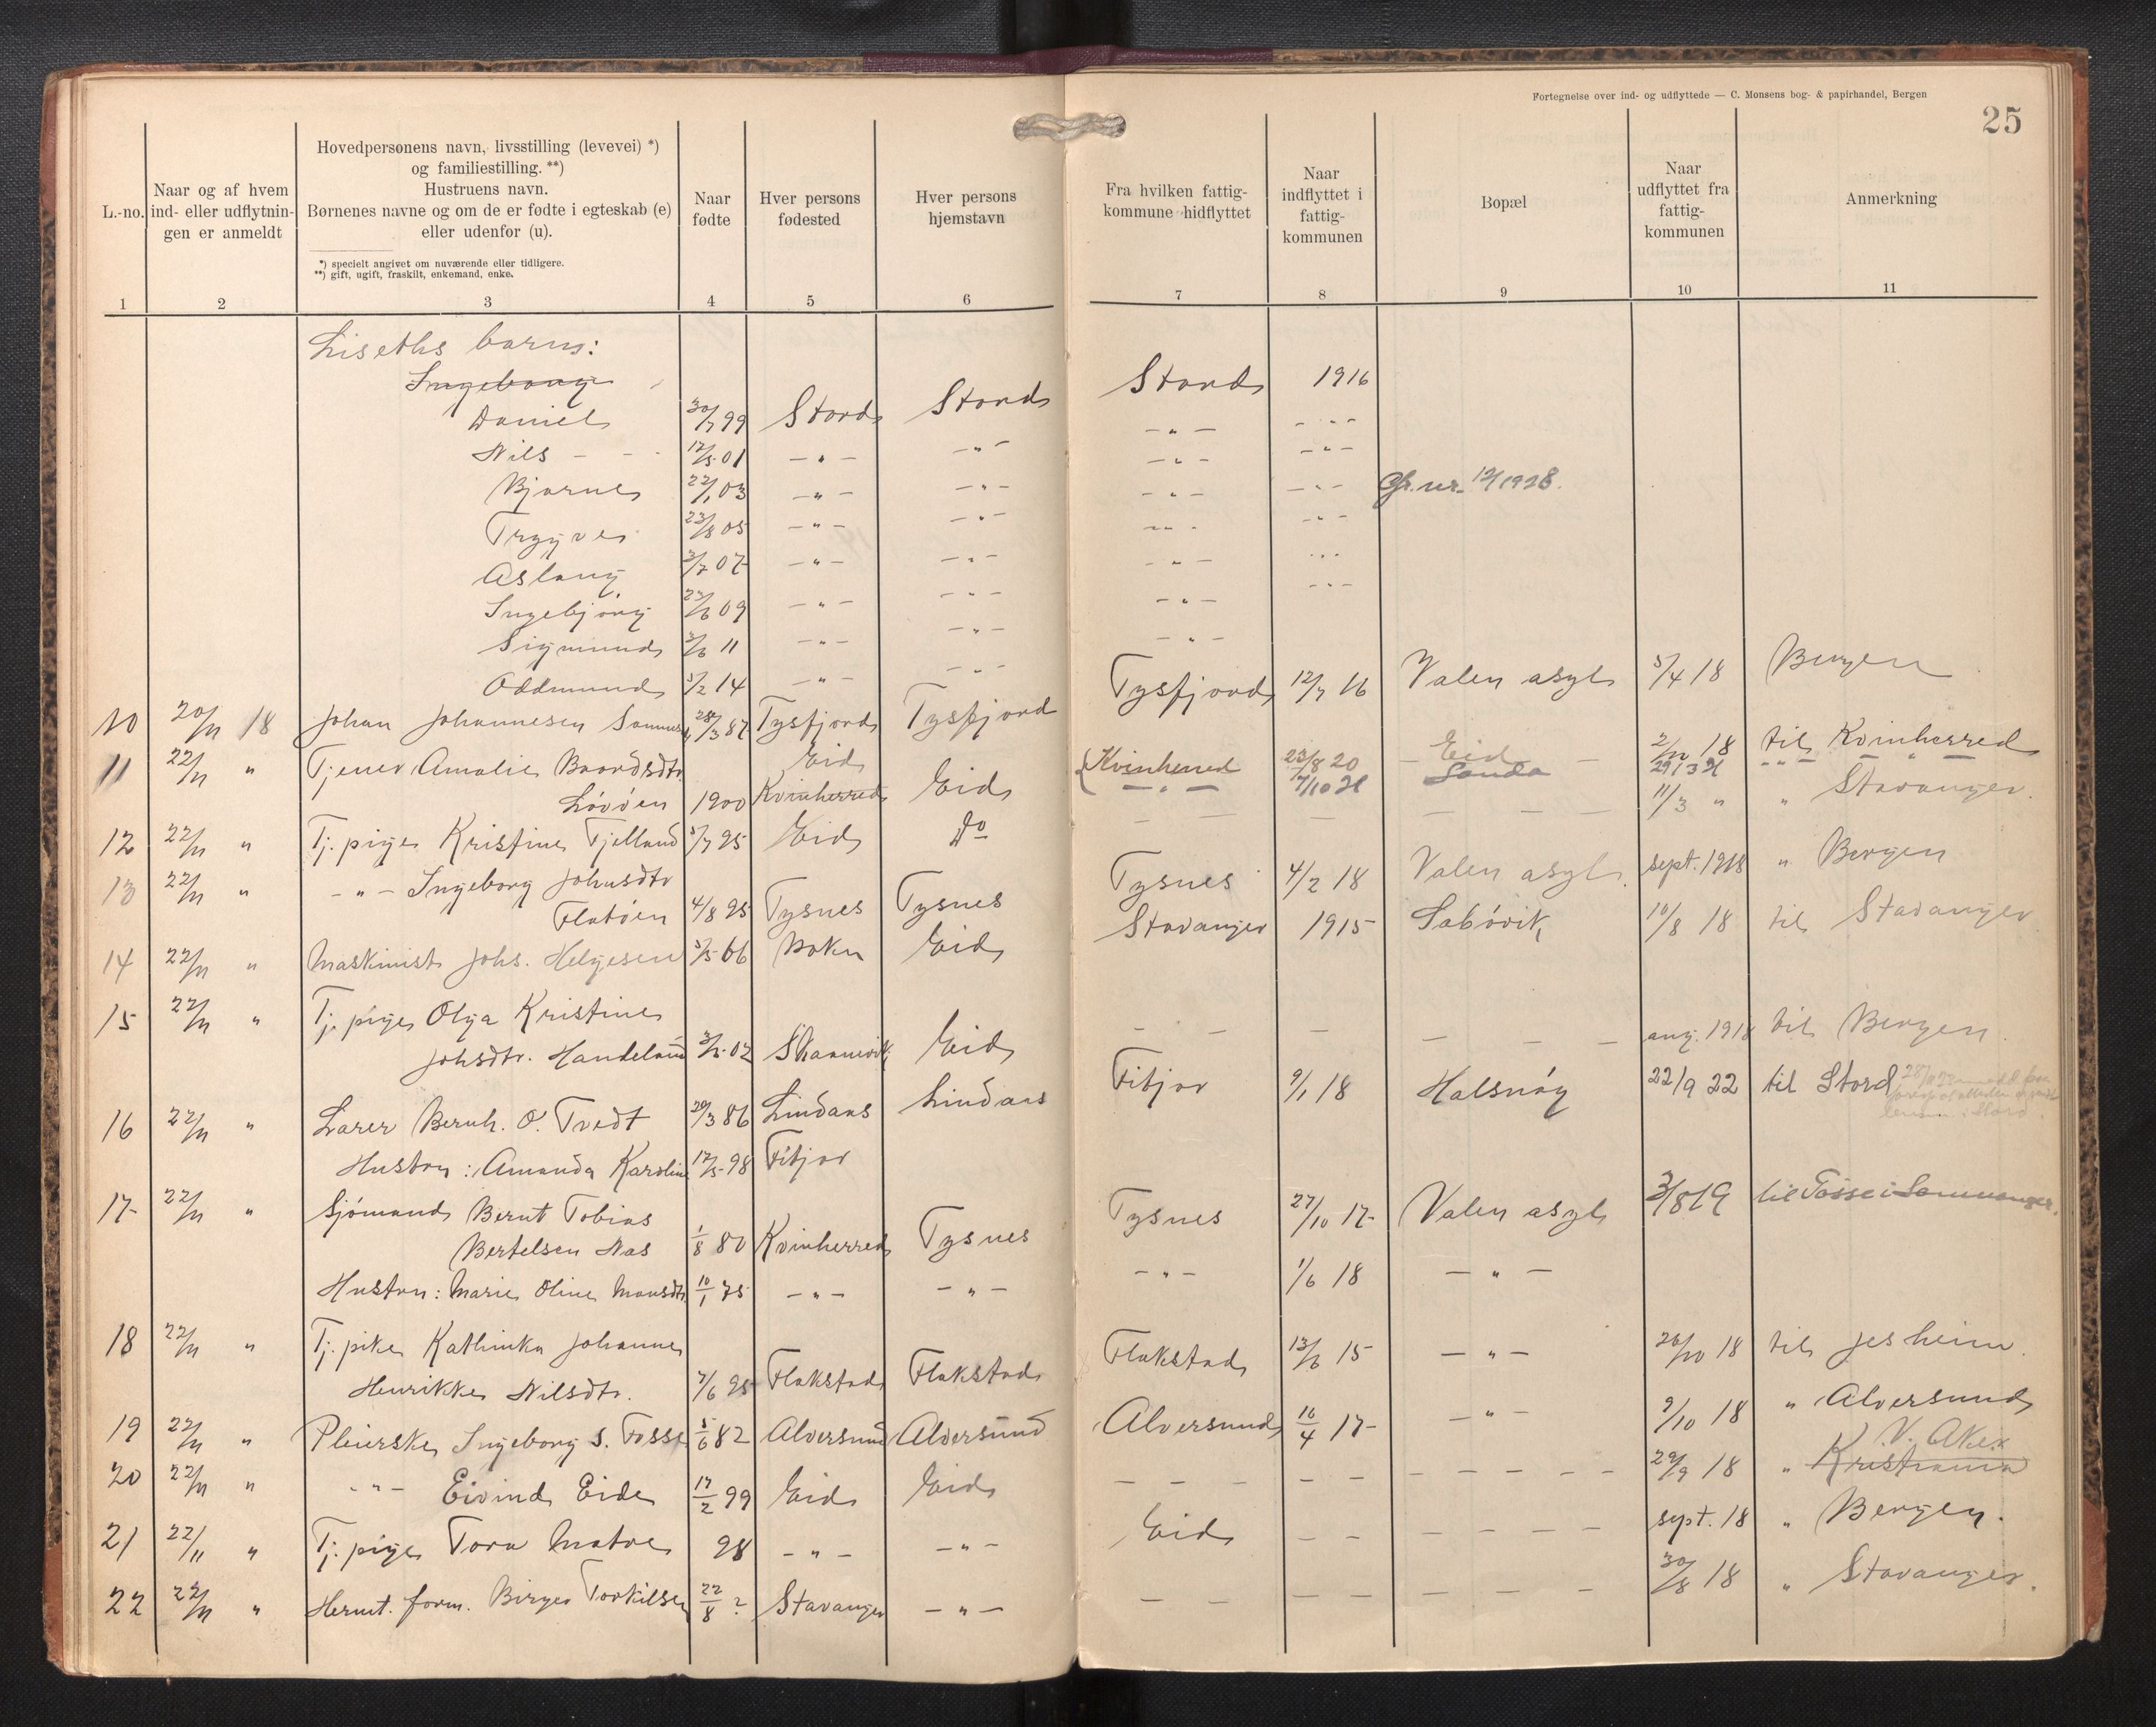 Fortegnelse over ind- og udflyttede — C. Monsens bog- & papirhandel, Bergen
25
L.-no.
Naar og af hvem ind- eller udflytnin-gen er anmeldt
Hovedpersonens navn, livsstilling (levevei) *)
og familiestilling. **)
Hustruens navn.
Børnenes navne og om de er fødte i egteskab (e)
eller udenfor (u).
*) specielt angivet om nuværende eller tidligere.
**) gift, ugift, fraskilt, enkemand, enke.
Naar fødte
Hver persons fødested
Hver persons hjemstavn
Fra hvilken fattig-kommune hidflyttet
Naar indflyttet i fattig-kommunen
Bopæl
Naar udflyttet fra fattig-kommunen
Anmerkning
1 2 3 4 5 6 7 8 9 10 11
Liseths barn:
Ingeborg Stord 1916
Daniel 30/7 99 Stord Stord -"- -"-
Nils - - 12/5 01 -"- -"- -"- -"-
Bjarne 22/1 03 -"- -"- -"- -"- 1928.
Trygve 23/8 05 -"- -"- -"- -"-
Aslaug 3/7 07 -"- -"- -"- -"-
Ingebjörg 23/6 09 -"- -"- -"- -"-
Sigmund 3/6 11 -"- -"- -"-
Oddmund 3/2 14 -"- -"-
10 20/11 18 Johan Johannesen 28/3 87 Tysfjord Tysfjord Tysfjord 12/7 16 Valen asyl 5/4 18 Bergen
11 22/11 " Tjener Amalie Baardsdtr Eid Kvinherred 23/8 20 Eid 2/10 18 til Kvinherred
Lövöen 1900 Kvinherred Eid -"- 7/10 21 Sanda 29/3 21 -"-
12 22/11 " Tj. pige Kristine Fjelland 5/7 95 Eid Do - - - - - 11/3 " " Stavanger.
13 22/11 " -"- Ingeborg Johnsdtr
Flatöen 4/8 95 Tysnes Tysnes Tysnes 4/2 18 Valen asyl. sept. 1918 " Bergen
14 22/11 " Maskinist Johs. Helgesen 5/5 66 Bokn Eid Stavanger 1915 Sabövik 10/8 18 til Stavanger
15 22/11 " Tj. pige Olga Kristine
Johsdtr. Handeland 3/5 02 Skaanevik Eid - - - - - - aug. 1918 til Bergen.
16 22/11 " Lärer Bernh. O. Tvedt 29/3 86 Lindaas Lindaas Fitjar 9/1 18 Halsnöy 22/9 22 til Stord
Hustru: Amanda Karoline 12/5 98 Fitjar
17 22/11 " Sjömand Bernt Tobias
Bertelsen Nas 1/8 80 Kvinherred Tysnes Tysnes 27/10 17 Valen asyl 3/8 19 til Fosse i Samnanger.
Hustru: Marie Oline Monsdtr 10/1 75 -"- -"- -"- 1/6 18 -"-
18 22/11 " Tj. pike Kathinka Johanne
Henrikke Nilsdtr. 7/6 95 Flakstad Flakstad Flakstad 13/6 15 -"- 26/10 18 til Jesheim.
19 22/11 " Pleierske Ingeborg S. Fosse 5/6 82 Alversund Alversund Alversund 16/4 17 -"- 9/10 18 " Alversund
20 22/11 " -"- Eivind Eide 17/2 99 Eid Eid - - - - - - - 29/9 18 " Kristiania V. Aker
21 22/11 " Tj. pige Tora Matre 98 -"- -"- Eid - - - - - sept. 18 " Bergen.
22 22/11 " Hermt. form. Birger Torkilsen 22/8 ? Stavanger -"- - - - - - - 30/8 18 " Stavanger.